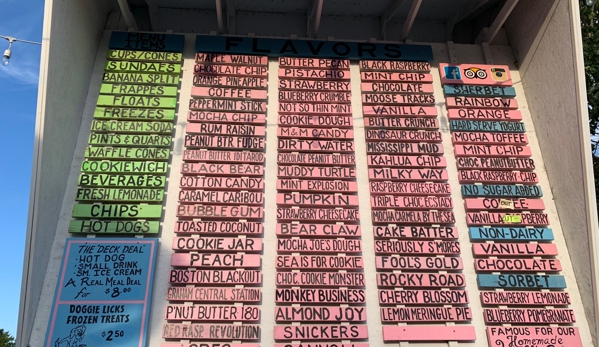 MENU
ITEMS
CUPS/CONES
SUNDAES
BANANA SPLIT
FRAPPES
FLOATS
FREEZES
ICE CREAM SODA
PINTS & QUARTS
WAFFLE CONES
COOKIEWICH
BEVERAGES
FRESH LEMONADE
CHIPS
HOT DOGS
"THE DECK DEAL"
• HOT DOG
• SMALL DRINK
• SM. ICE CREAM
A REAL MEAL DEAL
for $8.00
DOGGIE LICKS
FROZEN TREATS
$2.50
FLAVORS
MAPLE WALNUT
CHOCOLATE CHIP
ORANGE PINEAPPLE
COFFEE
PEPPERMINT STICK
MOCHA CHIP
RUM RAISIN
PEANUT BTR FUDGE
PEANUT BUTTER
BLACK BEAR
COTTON CANDY
CARAMEL CARIBOU
BUBBLE GUM
TOASTED COCONUT
COOKIE JAR
PEACH
BOSTON BLACKOUT
GRAHAM CENTRAL STATION
P'NUT BUTTER 180
RED RASP. REVOLUTION
BUTTER PECAN
PISTACHIO
STRAWBERRY
BLUEBERRY CRUMBLE
NOT SO THIN MINT
COOKIE DOUGH
M&M CANDY
DIRTY WATER
CHOCOLATE PEANUT BUTTER
MUDDY TURTLE
MINT EXPLOSION
PUMPKIN
STRAWBERRY CHEESECAKE
BEAR CLAW
MOCHA JOE'S DOUGH
SEA IS FOR COOKIE
CHOC. COOKIE MONSTER
MONKEY BUSINESS
ALMOND JOY
SNICKERS
CANNOLI
BLACK RASPBERRY
MINT CHIP
CHOCOLATE
MOOSE TRACKS
VANILLA
BUTTER CRUNCH
DINOSAUR CRUNCH
MISSISSIPPI MUD
KAHLUA CHIP
MILKY WAY
RASPBERRY CHEESECAKE
TRIPLE CHOC ECSTACY
MOCHA CARMELA BY THE SEA
CAKE BATTER
SERIOUSLY S'MORES
FOOL'S GOLD
ROCKY ROAD
CHERRY BLOSSOM
LEMON MERINGUE PIE
SHERBET
RAINBOW
ORANGE
HARD SERVE YOGURT
MOCHA TOFFEE
MINT CHIP
CHOC PEANUTBUTTER
BLACK RASPBERRY CHIP
NO SUGAR ADDED
NON-DAIRY
VANILLA
CHOCOLATE
SORBET
STRAWBERRY LEMONADE
BLUEBERRY POMEGRANATE
FAMOUS FOR
OUR Homemade